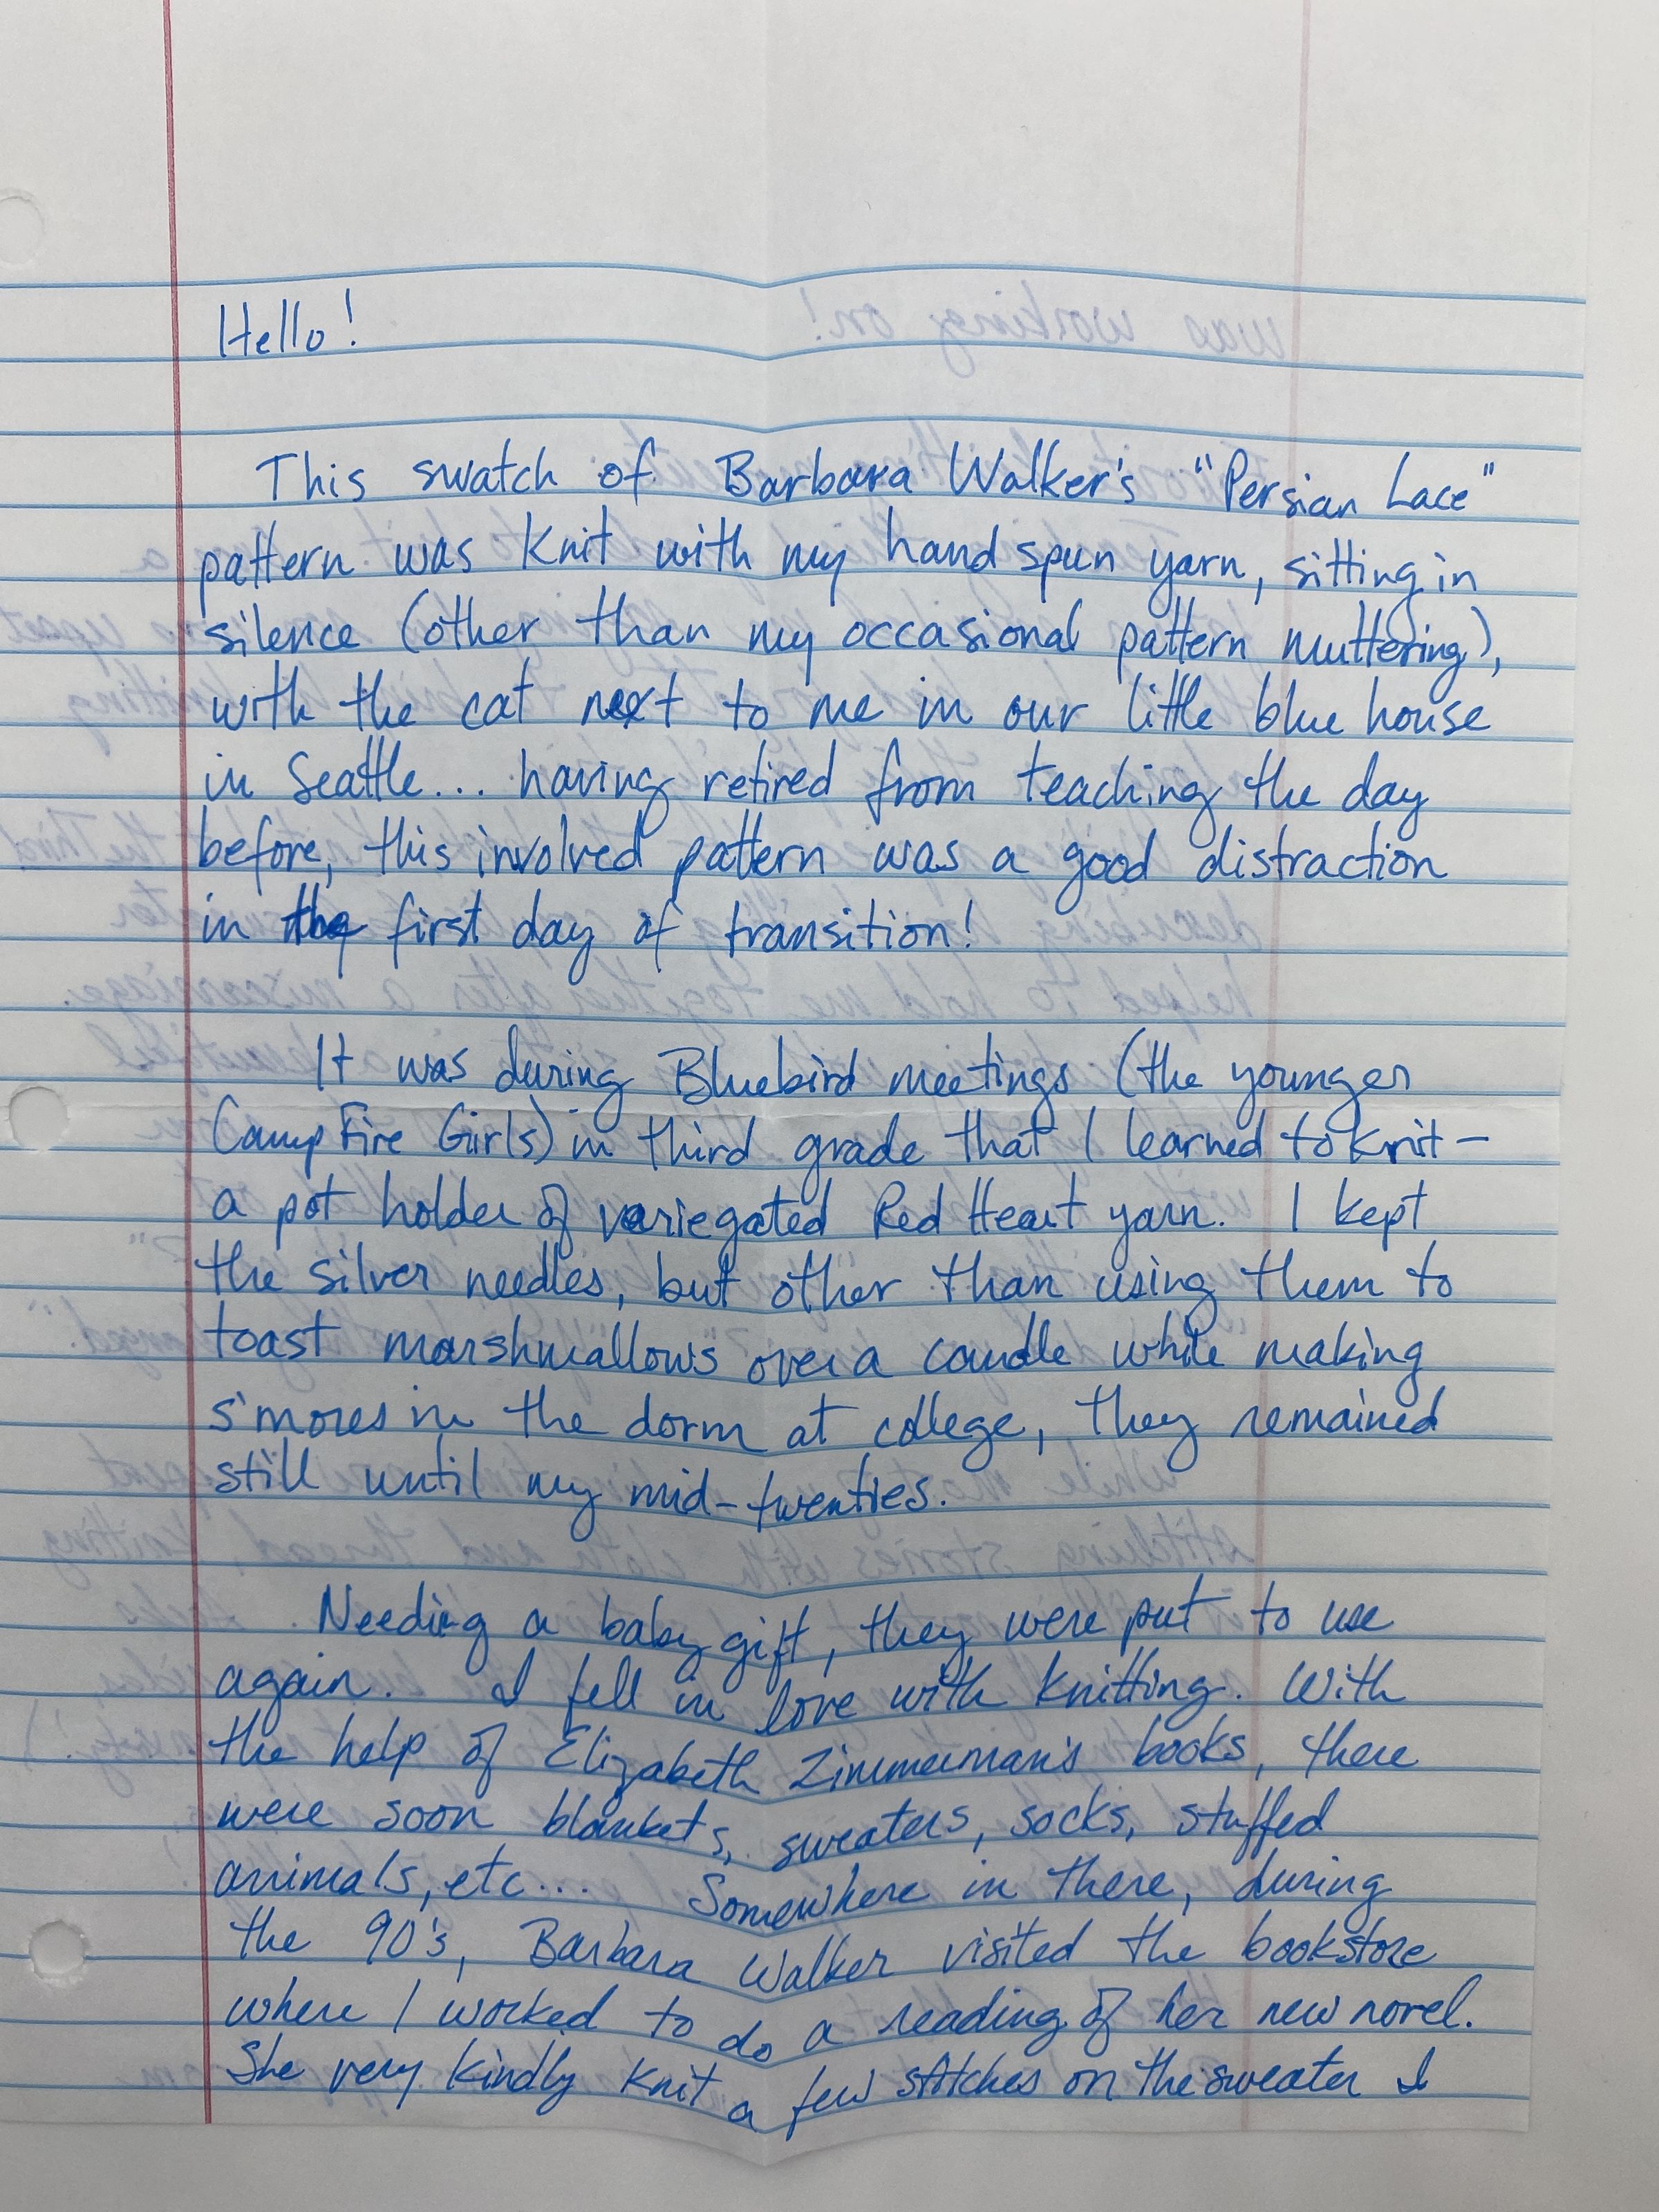 Hello!
This swatch of Barbara Walker's "Persian Lace"
pattern was knit with my hand spun yarn, sitting in
silence (other than my occasional pattern muttering),
with the cat next to me in our little blue house
in Seattle... having retired from teaching the day
before, this involved pattern was a good distraction
in the first day of transition!
It was during Bluebird meetings (the younger
Camp Fire Girls) in third grade that I learned to knit –
a pot holder of variegated Red Heart yarn. I kept
the silver needles, but other than using them to
toast marshmallows over a candle while making
s'mores in the dorm at college, they remained
still until my mid-twenties.
Needing a baby gift, they were put to use
again. I fell in love with knitting. With
the help of Elizabeth Zimmerman's books, there
were soon blankets, sweaters, socks, stuffed
animals, etc... Somewhere in there, during
the 90's, Barbara Walker visited the bookstore
where I worked to do a reading of her new novel.
She very kindly knit a few stitches on the sweater I